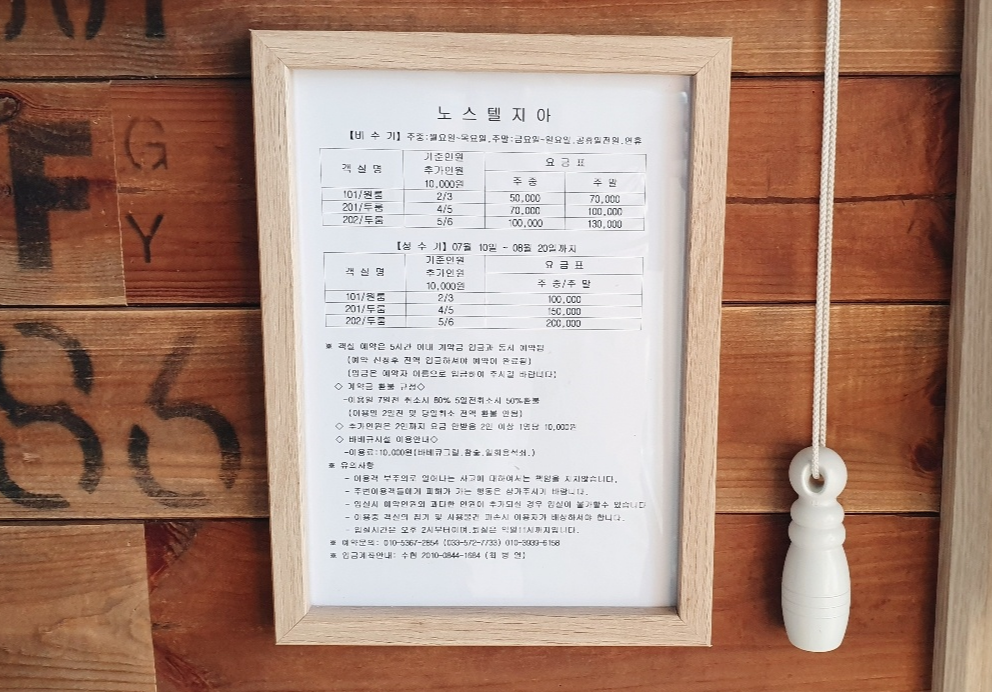 F
G
Y
86
노스텔지아
[비 수 기] 주중:월요일~목요일,주말:금요일~일요일,공휴일전일,연휴
객 실 명
기준인원
추가인원
10,000원
요 금 표
주 중
주 말
101/원룸 2/3 50,000 70,000
201/두룸 4/5 70,000 100,000
202/두룸 5/6 100,000 130,000
[성 수 기] 07월 10일 ~ 08월 20일까지
객 실 명
기준인원
추가인원
10,000원
요 금 표
주 중/주 말
101/원룸 2/3 100,000
201/두룸 4/5 150,000
202/두룸 5/6 200,000
※ 객실 예약은 5시간 이내 계약금 입금과 동시 예약됨
(예약 신청후 전액 입금하셔야 예약이 완료됨)
(입금은 예약자 이름으로 입금하여 주시길 바랍니다)
◇ 계약금 환불 규정◇
-이용일 7일전 취소시 80% 5일전취소시 50%환불
(이용일 2일전 및 당일취소 전액 환불 안됨)
◇ 추가인원은 2인까지 요금 안받음 2인 이상 1명당 10,000원
◇ 바베큐시설 이용안내◇
-이용료:10,000원(바베큐그릴,참숯,일회용석쇠.)
※ 유의사항
- 이용객 부주의로 일어나는 사고에 대하여서는 책임을 지지않습니다.
- 주변이용객들에게 피해가 가는 행동은 삼가주시기 바랍니다.
- 입실시 예약인원외 과다한 인원이 추가되실 경우 입실이 불가할수 있습니다
- 이용중 객실의 집기 및 사용물건 파손시 이용자가 배상하셔야 합니다.
- 입실시간은 오후 2시부터이며,퇴실은 익일11시까지입니다.
※ 예약문의: 010-5367-2854 (033-572-7733) 010-3939-6158
※ 입금계좌안내: 수협 2010-0844-1684 (최 병 연)